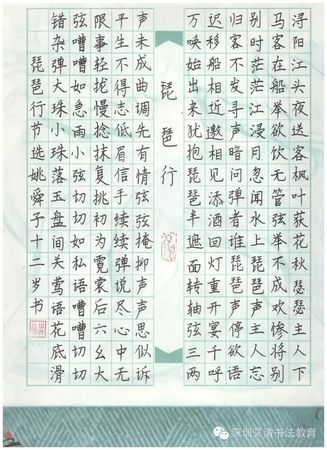 浔阳江头夜送客枫叶荻花秋瑟瑟主人下
马客在船举欲饮无管弦举不成欢惨将别
别时茫茫江浸月忽闻水上琵琶声主人忘
归客不发寻声暗问弹者谁琵琶声停欲语
迟移船相近邀相见添酒回灯重开宴千呼
万唤始出来犹抱琵琶半遮面转轴弦三两
琵琶行
声未成曲调先有情弦弦掩抑声声思似诉
平生不得志低眉信手续续弹说尽心中无
限事轻拢慢捻抹复挑初为霓裳后六幺大
弦嘈嘈如急雨小弦切切如私语嘈嘈切切
错杂弹大珠小珠落玉盘间关莺语花底滑
琵琶行节选姚舜子十二岁书
深圳艾清书法教育